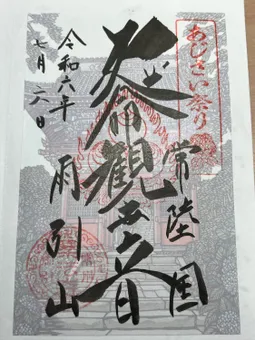 あじさい祭り
常陸国
延命觀世音
雨引山
令和六年
七月 日